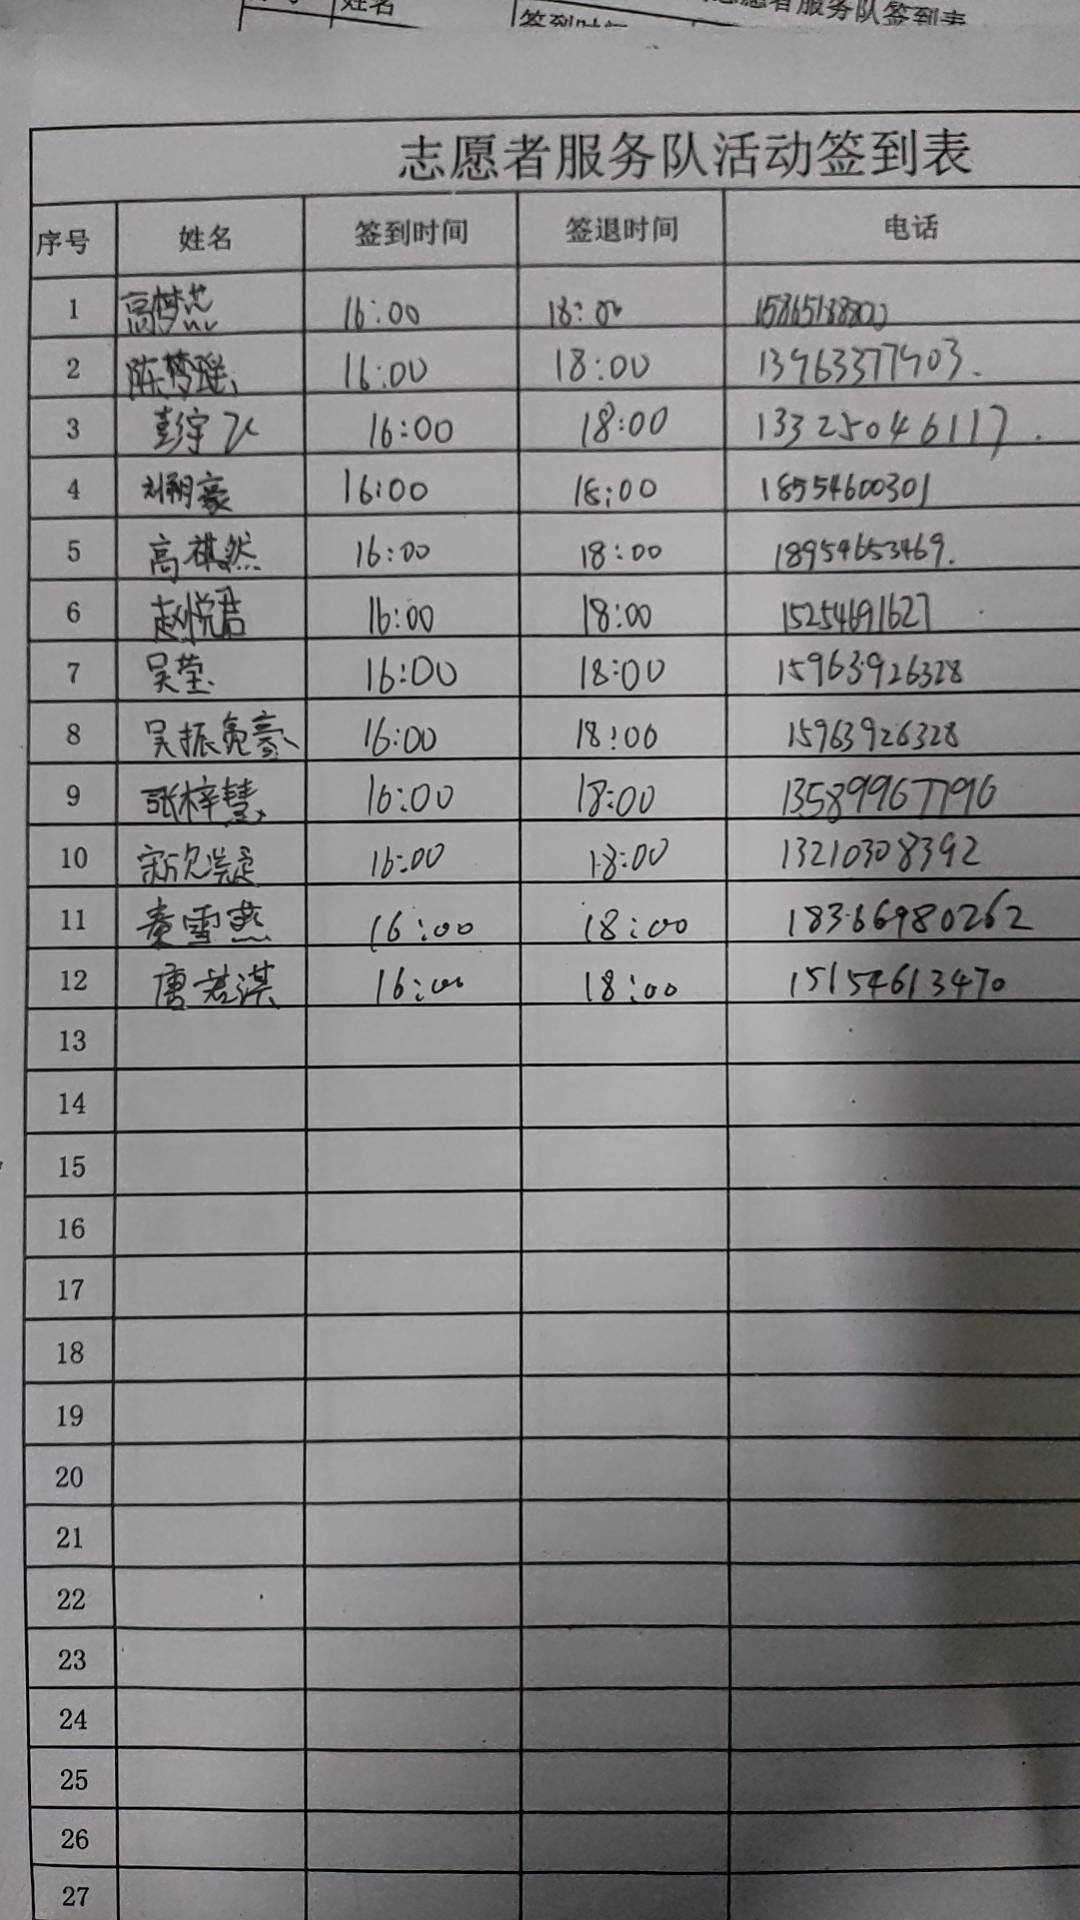 姓名 签到时间 志愿者服务队签到表
志愿者服务队活动签到表
序号 姓名 签到时间 签退时间 电话
1 16:00 18:00
2 陈梦瑶 16:00 18:00 13963377903.
3 彭宇飞 16:00 18:00 13325046117.
4 刘朔豪 16:00 18:00 18554600301
5 高祺然 16:00 18:00 18954653469.
6 赵悦君 16:00 18:00 15254691627
7 吴莹 16:00 18:00 15963926328
8 吴振亮豪 16:00 18:00 15963926328
9 张梓慧 16:00 18:00 13589967796
10 16:00 18:00 13210308392
11 秦雪燕 16:00 18:00 18366980262
12 唐若淇 16:00 18:00 15154613470
13
14
15
16
17
18
19
20
21
22
23
24
25
26
27